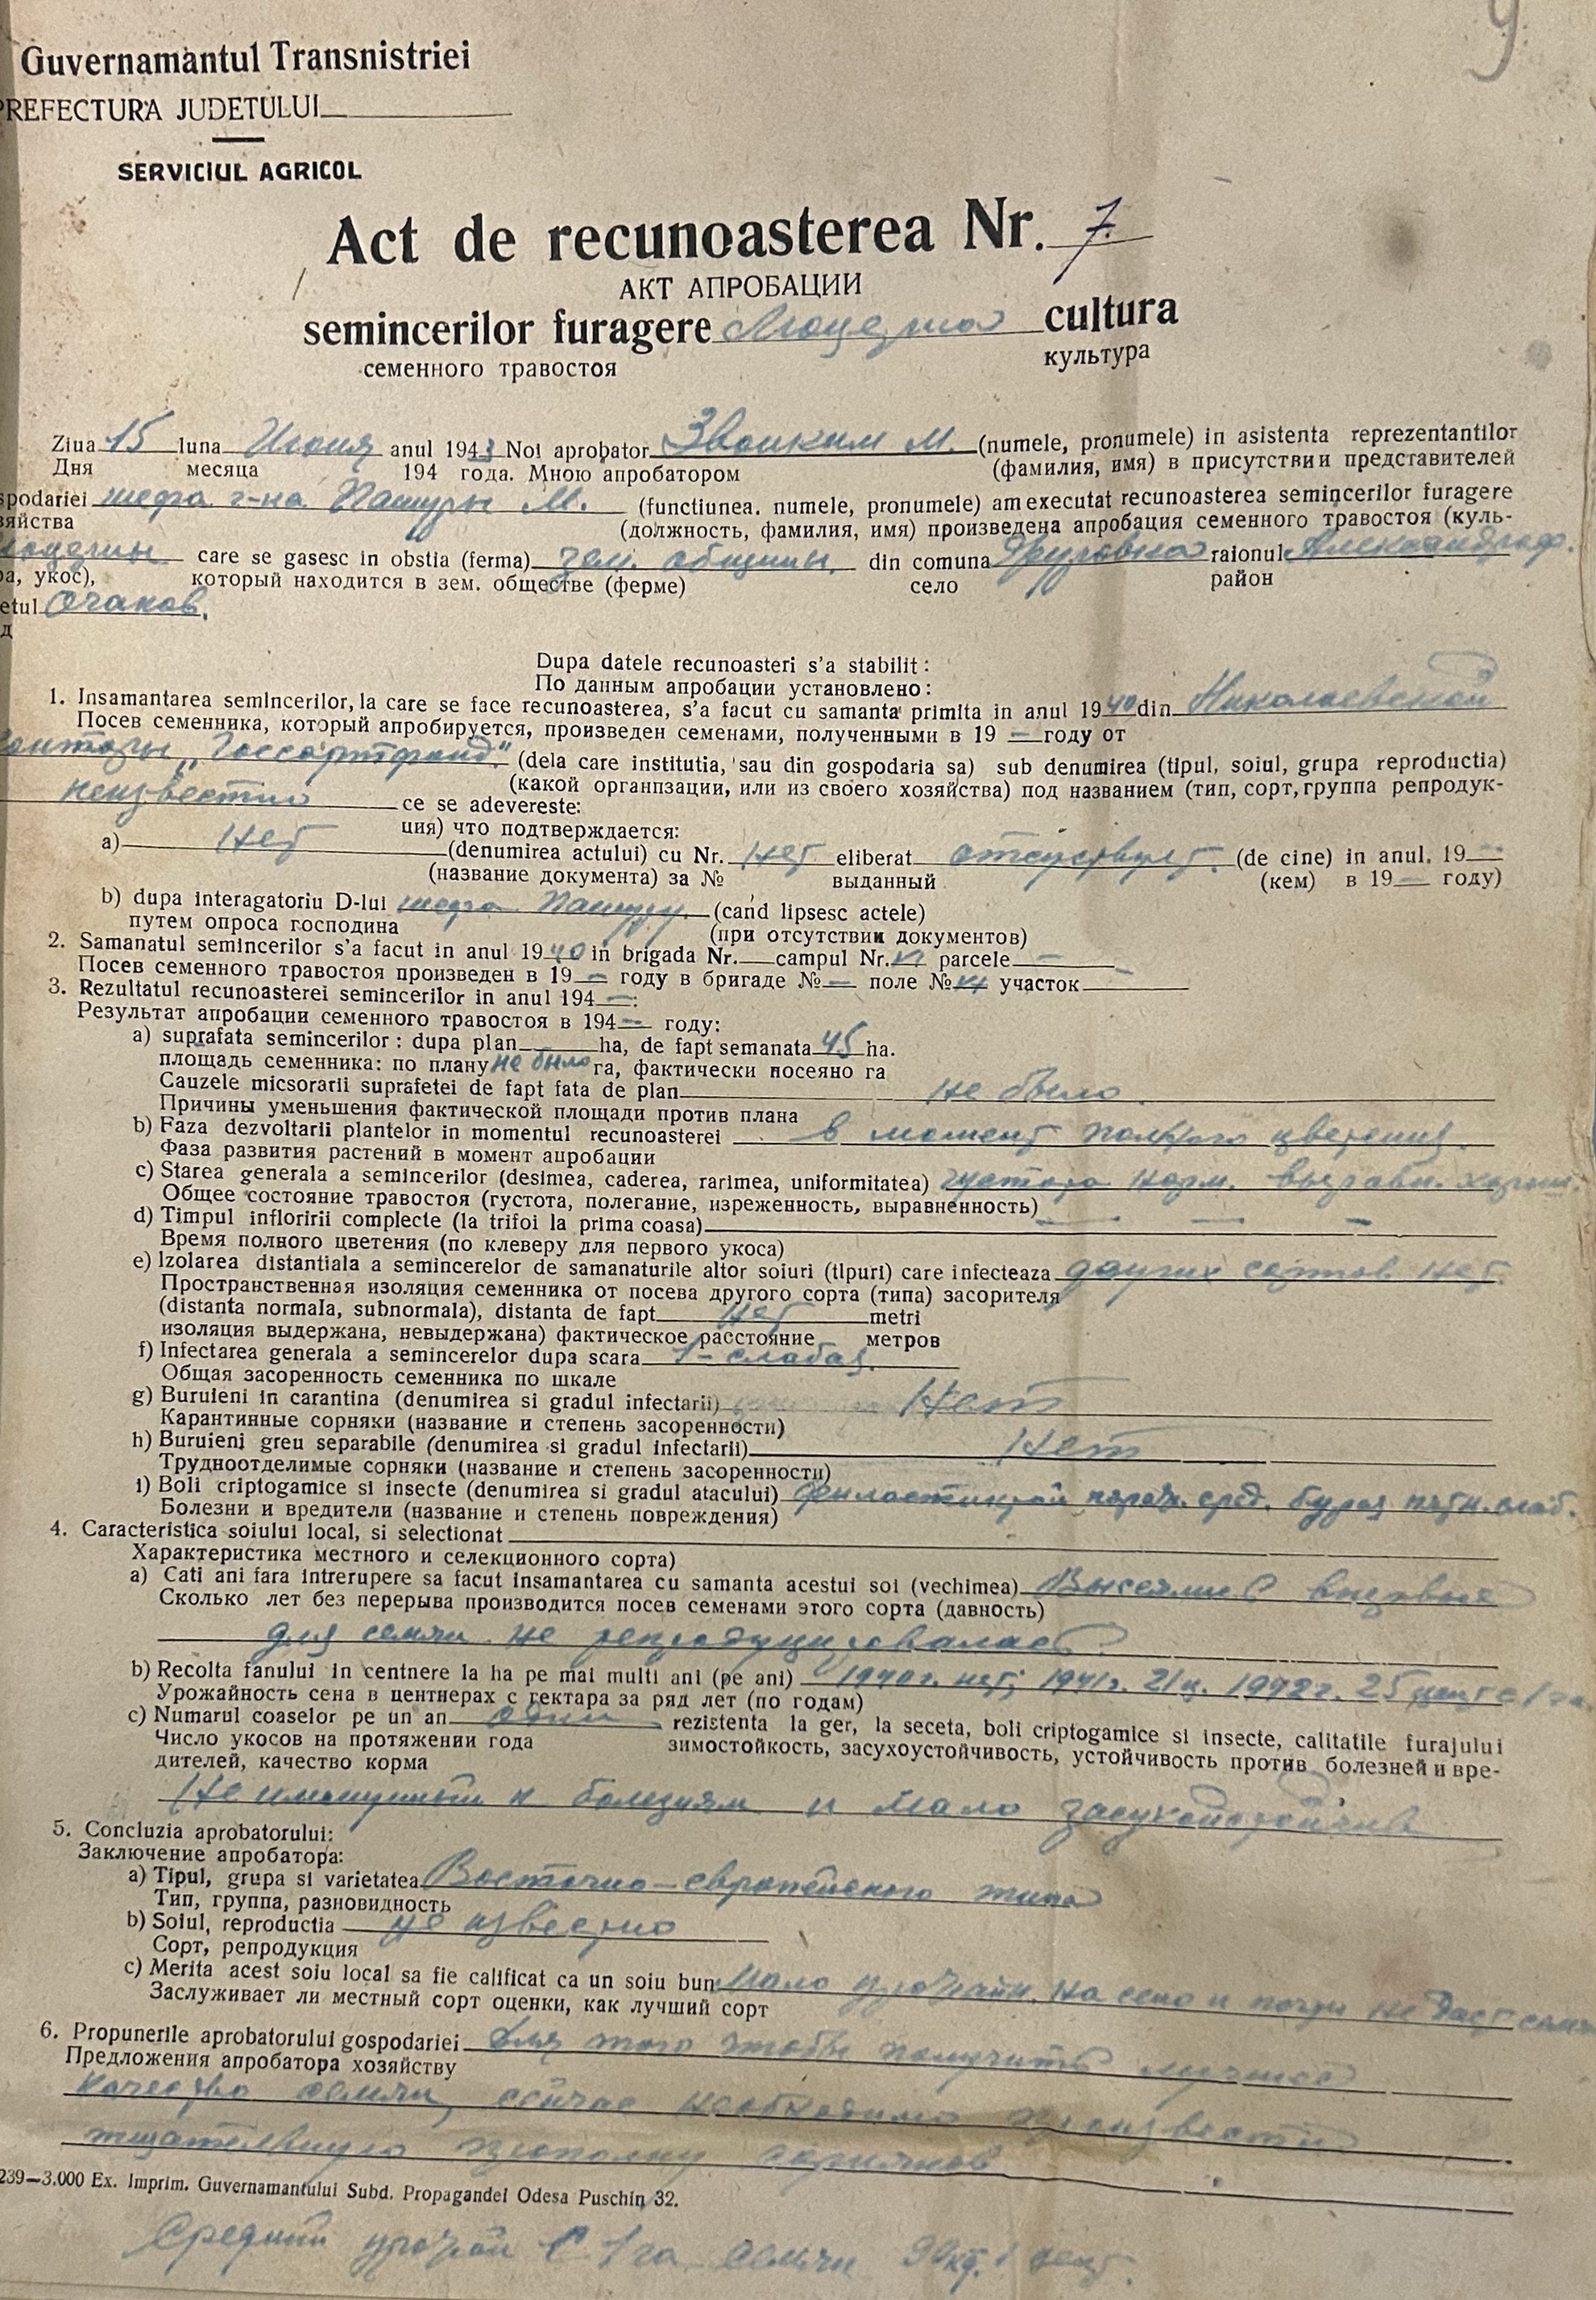 9
Guvernamantul Transnistriei
PREFECTURA JUDETULUI
SERVICIUL AGRICOL
Act de recunoasterea Nr. 7.
АКТ АПРОБАЦИИ
semincerilor furagere Люцерна cultura
семенного травостоя культура
Ziua 15 luna Июня anul 1943 Noi aprobator Звонким М. (numele, pronumele) in asistenta reprezentantilor
Дня месяца 194 года. Мною апробатором (фамилия, имя) в присутствии представителей
spodariei шефа г-на Пашуры М. (functiunea. numele, pronumele) am executat recunoasterea semincerilor furagere
зяйства (должность, фамилия, имя) произведена апробация семенного травостоя (куль-
люцерны care se gasesc in obstia (ferma) зем. общины, din comuna raionul Александроф.
ра, укос), который находится в зем. обществе (ферме) село район
etul Очаков.
д
Dupa datele recunoasteri s'a stabilit:
По данным апробации установлено:
1. Insamantarea semincerilor, la care se face recunoasterea, s'a facut cu samanta primita in anul 1940 din Николаевской
Посев семенника, который апробируется, произведен семенами, полученными в 19 — году от
конторы „Госсортфонд" (dela care institutia, sau din gospodaria sa) sub denumirea (tipul, soiul, grupa reproductia)
(какой организации, или из своего хозяйства) под названием (тип, сорт, группа репродук-
неизвестно ce se adevereste:
ция) что подтверждается:
a) Нет (denumirea actului) cu Nr. Нет eliberat отсутствует. (de cine) in anul. 19—
(название документа) за № выданный (кем) в 19— году)
b) dupa interagatoriu D-lui шефа Пашуру. (cand lipsesc actele)
путем опроса господина (при отсутствии документов)
2. Samanatul semincerilor s'a facut in anul 1940 in brigada Nr.— campul Nr. VI parcele —
Посев семенного травостоя произведен в 19 — году в бригаде №— поле № VI участок —
3. Rezultatul recunoasterei semincerilor in anul 194—:
Результат апробации семенного травостоя в 194— году:
a) suprafata semincerilor: dupa plan ha, de fapt semanata 45 ha.
площадь семенника: по плану не было га, фактически посеяно га
Cauzele micsorarii suprafetei de fapt fata de plan не было.
Причины уменьшения фактической площади против плана
b) Faza dezvoltarii plantelor in momentul recunoasterei в момент полного цветения.
Фаза развития растений в момент апробации
c) Starea generala a semincerilor (desimea, caderea, rarimea, uniformitatea) густота норм. выравн. хорош.
Общее состояние травостоя (густота, полегание, изреженность, выравненность)
d) Timpul infloririi complecte (la trifoi la prima coasa) — — —
Время полного цветения (по клеверу для первого укоса)
e) Izolarea distantiala a semincerelor de samanaturile altor soiuri (tipuri) care infecteaza других сортов нет.
Пространственная изоляция семенника от посева другого сорта (типа) засорителя
(distanta normala, subnormala), distanta de fapt нет metri
изоляция выдержана, невыдержана) фактическое расстояние метров
f) Infectarea generala a semincerelor dupa scara 1- слабая.
Общая засоренность семенника по шкале
g) Buruieni in carantina (denumirea si gradul infectarii) Нет
Карантинные сорняки (название и степень засоренности)
h) Buruieni greu separabile (denumirea si gradul infectarii) Нет
Трудноотделимые сорняки (название и степень засоренности)
i) Boli criptogamice si insecte (denumirea si gradul atacului) сред. бурая пятн. слаб.
Болезни и вредители (название и степень повреждения)
4. Caracteristica soiului local, si selectionat
Характеристика местного и селекционного сорта)
a) Cati ani fara intrerupere sa facut insamantarea cu samanta acestui soi (vechimea) впервые
Сколько лет без перерыва производится посев семенами этого сорта (давность)
для семян не репродуцировалась
b) Recolta fanului in centnere la ha pe mai multi ani (pe ani) 1940г. нет; 1941г. 21ц. 1942г. 25 цент с 1 га
Урожайность сена в центнерах с гектара за ряд лет (по годам)
c) Numarul coaselor pe un an один rezistenta la ger, la seceta, boli criptogamice si insecte, calitatile furajului
Число укосов на протяжении года зимостойкость, засухоустойчивость, устойчивость против болезней и вре-
дителей, качество корма
Не имунный к болезням и мало засухоустойчив
5. Concluzia aprobatorului:
Заключение апробатора:
a) Tipul, grupa si varietatea Восточно-европейского типа
Тип, группа, разновидность
b) Soiul, reproductia не известно
Сорт, репродукция
c) Merita acest soiu local sa fie calificat ca un soiu bun Мало урожайн. на сено и почти не даст семян
Заслуживает ли местный сорт оценки, как лучший сорт
6. Propunerile aprobatorului gospodariei Для того чтобы получить лучшее
Предложения апробатора хозяйству
качество семян, сейчас необходимо произвести
тщательную прополку сорняков
239—3.000 Ex. Imprim. Guvernamantului Subd. Propagandei Odesa Puschin 32.
Средний урожай с 1 га семян